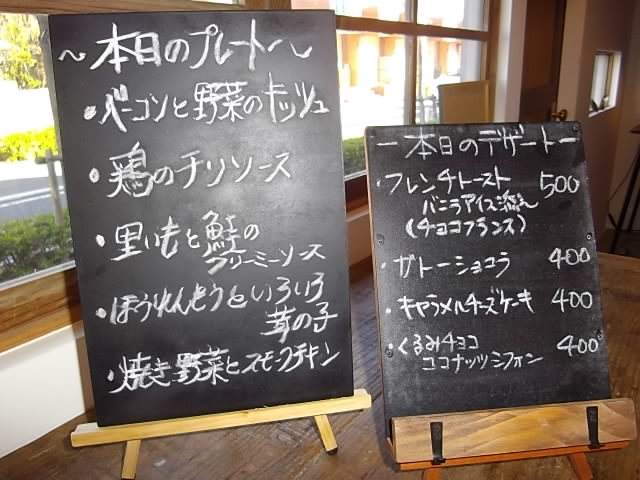 ～本日のプレート～
・ベーコンと野菜のキッシュ
・鶏のチリソース
・里いもと鮭の
クリーミーソース
・ほうれんそうといろいろ
茸の子
・焼き野菜とスモークチキン
ー本日のデザートー
・フレンチトースト 500
バニラアイス添え
(チョコフランス)
・ガトーショコラ 400
・キャラメルチーズケーキ 400
・くるみチョコ 400
ココナッツシフォン